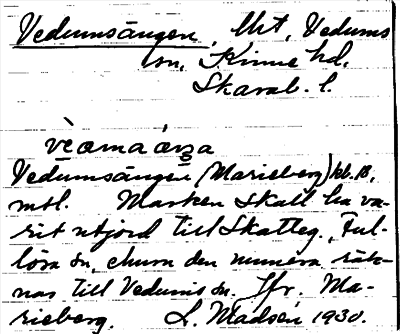 Vedumsängen, Lht, Vedums
sn, Kinne hd,
Skarab. l.
vèɷmaáŋa
Vedumsängen (Marieberg) kb. B,
mtl. Marken skall ha va-
rit utjord till Skatteg., Ful-
lösa sn, ehuru den numera räk-
nas till Vedums sn. Jfr. Ma-
rieberg. L. Madsén 1930.